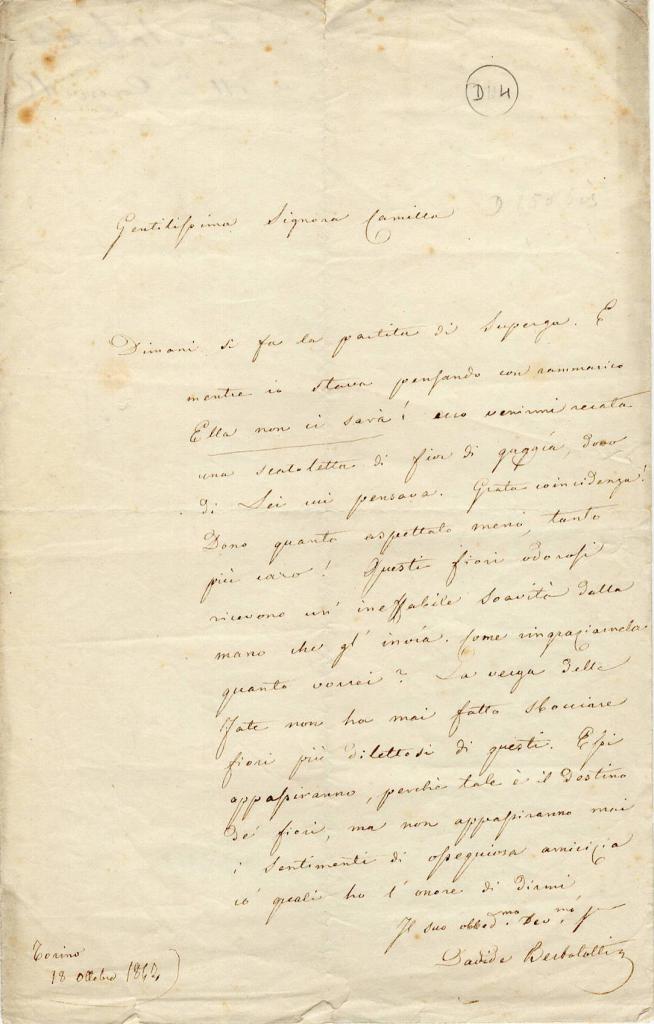 D 4
D 150 bis
Gentilissima Signora Camilla
Dimani si fa la partita di Superga. E
mentre io stava pensando con rammarico
Ella non ci sarà! ecco venirmi recata
una scatoletta di fior di gaggìa, dono
di Lei cui pensava. Grata coincidenza!
Dono quanto aspettato meno, tanto
più caro! Questi fiori odorosi
ricevono un' ineffabile soavità dalla
mano che gl' invia. Come ringraziarnela
quanto vorrei? La verga delle
Fate non ha mai fatto sbocciare
fiori più dilettosi di questi. Essi
appassiranno, perchè tale è il destino
de' fiori, ma non appassiranno mai
i sentimenti di ossequiosa amicizia
co' quali ho l' onore di dirmi
Il suo obbed.mo Dev.mo
Davide Bertolotti
Torino
18 Ottobre